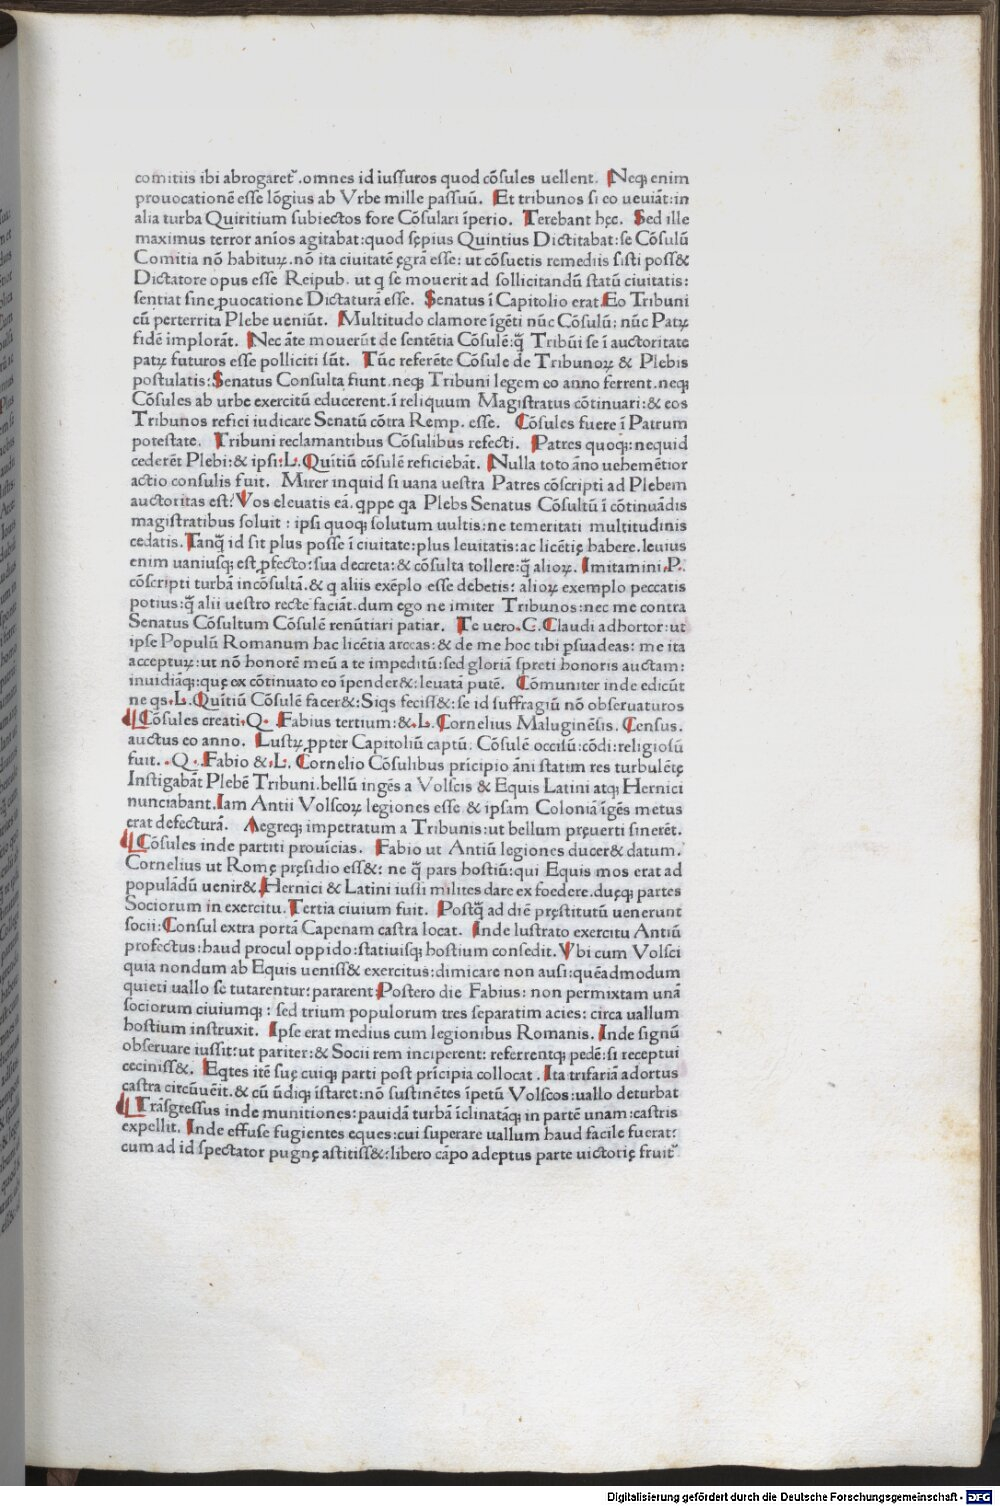 comitiis ibi abrogaret᷑.omnes id iussuros quod cõsules uellent. Neqꝫ enim
prouocationẽ esse lõgius ab Vrbe mille passuũ. Et tribunos si eo ueuiãt:in
alia turba Quiritium subiectos fore Cõsulari ĩperio. Terebant hęc. Sed ille
maximus terror aníos agitabat:quod sępius Quintius Dictitabat:se Cõsulũ
Comitia nõ habituꝝ.nõ ita ciuitatẽ ęgrã esse: ut cõsuetis remediis sisti poss&
Dictatore opus esse Reipub. ut q se mouerit ad sollicitandũ statũ ciuitatis:
sentiat sine ꝓuocatione Dictaturã esse. Senatus ĩ Capitolio erat.Eo Tribuni
cũ perterrita Plebe ueniũt. Multitudo clamore ĩgẽti nũc Cõsulũ: nũc Patꝝ
fidẽ implorãt. Nec ãte mouerũt de sentẽtia Cõsulẽ:q̃ Tribũi se ĩ auctoritate
patꝝ futuros esse polliciti sũt. Tũc referẽte Cõsule de Tribunoꝝ & Plebis
postulatis:Senatus Consulta fiunt.neqꝫ Tribuni legem eo anno ferrent.neqꝫ
Cõsules ab urbe exercitũ educerent.ĩ reliquum Magistratus cõtinuari:& eos
Tribunos refici iudicare Senatũ cõtra Remp. esse. Cõsules fuere ĩ Patrum
potestate. Tribuni reclamantibus Cõsulibus refecti. Patres quoqꝫ:nequid
cederẽt Plebi:& ipsi:L.Quĩtiũ cõsulẽ reficiebãt. Nulla toto ãno uehemẽtior
actio consulis fuit. Mirer inquid si uana uestra Patres cõscripti ad Plebem
auctoritas est? Vos eleuatis eã.qppe qa Plebs Senatus Cõsultũ ĩ cõtinuãdis
magistratibus soluit : ipsi quoqꝫ solutum uultis:ne temeritati multitudinis
cedatis.Tanq̃ id sit plus posse ĩ ciuitate:plus leuitatis:ac licẽtię habere.leuius
enim uaniusqꝫ est ꝓfecto:sua decreta:& cõsulta tollere:q̃ alioꝝ. Imitamini.P.
cõscripti turbã incõsultã.& q aliis exẽplo esse debetis: alioꝝ exemplo peccatis
potius:q̃ alii uestro recte faciãt.dum ego ne imiter Tribunos:nec me contra
Senatus Cõsultum Cõsulẽ renũtiari patiar. Te uero.C.Claudi adhortor:ut
ipse Populũ Romanum hac licẽtia arceas:& de me hoc tibi ꝑsuadeas: me ita
acceptuꝝ:ut nõ honorẽ meũ a te impeditũ:sed gloriã spreti honoris auctam:
inuidiãqꝫ:quę ex cõtinuato eo ĩpender&:leuatã putẽ. Cõmuniter inde edicũt
ne qs.L.Quĩtiũ Cõsulẽ facer&:Siqs feciss&:se id suffragiũ nõ obseruaturos
Cõsules creati.Q. Fabius tertium:&.L.Cornelius Maluginẽsis. Census.
auctus eo anno. Lustꝝ ꝓpter Capitoliũ captũ. Cõsulẽ occisũ:cõdi:religiosũ
fuit. .Q.Fabio &.L.Cornelio Cõsulibus prĩcipio ãni statim res turbulẽtę
Instigabãt Plebẽ Tribuni.bellũ ingẽs a Volscis & Equis Latini atqꝫ Hernici
nunciabant.Iam Antii Volscoꝝ legiones esse & ipsam Coloniã ĩgẽs metus
erat defecturã. Aegreqꝫ impetratum a Tribunis:ut bellum pręuerti sinerẽt.
Cõsules inde partiti prouĩcias. Fabio ut Antiũ legiones ducer& datum.
Cornelius ut Romę pręsidio ess&: ne q̃ pars hostiũ:qui Equis mos erat ad
populãdũ uenir&.Hernici & Latini iussi milites dare ex foedere.duęqꝫ partes
Sociorum in exercitu.Tertia ciuium fuit. Postq̃ ad diẽ pręstitutũ uenerunt
socii:Consul extra portã Capenam castra locat. Inde lustrato exercitu Antiũ
profectus:haud procul oppido:statiuisqꝫ hostium consedit.Vbi cum Volsci
quia nondum ab Equis ueniss& exercitus:dimicare non ausi:quẽadmodum
quieti uallo se tutarentur:pararent:Postero die Fabius: non permixtam unã
sociorum ciuiumqꝫ : sed trium populorum tres separatim acies: circa uallum
hostium instruxit. Ipse erat medius cum legionibus Romanis. Inde signũ
obseruare iussit:ut pariter:& Socii rem inciperent: referrentqꝫ pedẽ:si receptui
ceciniss&. Eqtes itẽ suę cuiqꝫ parti post prĩcipia collocat. Ita trifariã adortus
castra circũuẽit.& cũ ũdiqꝫ ĩstaret:nõ sustinẽtes ĩpetũ Volscos:uallo deturbat
Trãsgressus inde munitiones:pauidã turbã ĩclinatãqꝫ in partẽ unam:castris
expellit. Inde effuse fugientes eques:cui superare uallum haud facile fuerat:
cum ad id spectator pugnę astitiss&:libero cãpo adeptus parte uictorię fruit᷑
Digitalisierung gefördert durch die Deutsche Forschungsgemeinschaft - DFG